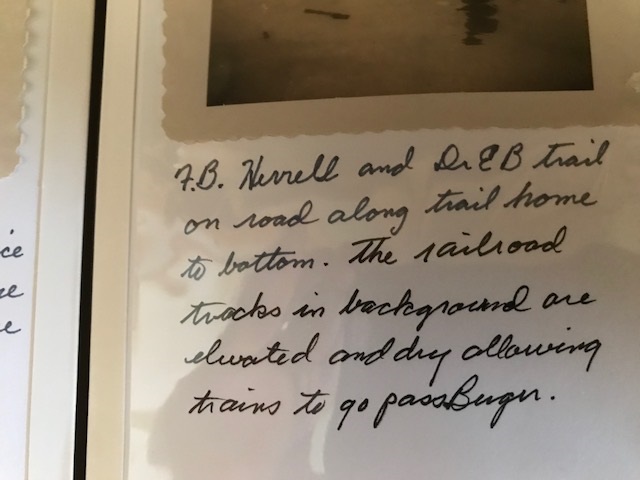 F.B. Herrell and Dr EB trail
on road along trail home
to bottom. The railroad
tracks in background are
elevated and dry allowing
trains to go pass Burger.
ce